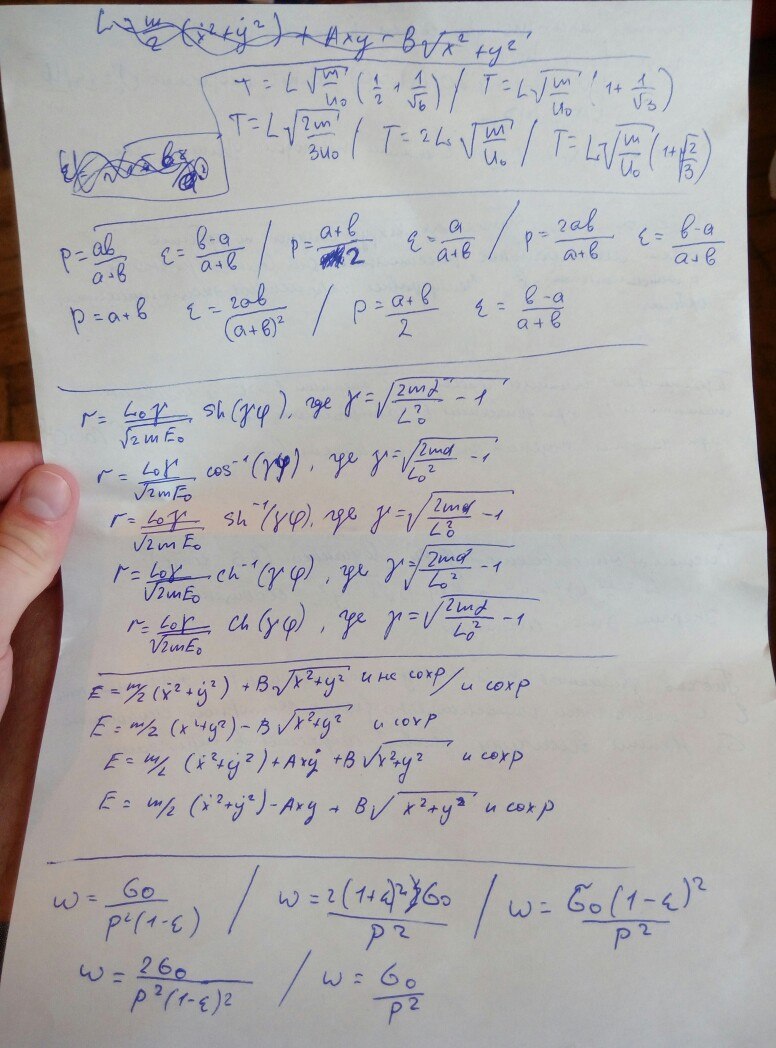 L = m/2 (ẋ²+ẏ²) + Axẏ - B√(x²+y²)
T = L√(m/U₀) (1/2 + 1/√6) / T = L√(m/U₀) (1 + 1/√3)
T = L√(2m/3U₀) / T = 2L√(m/U₀) / T = L√(m/U₀) (1+√(2/3))
p = ab/(a+b) ε = (b-a)/(a+b) / p = (a+b)/2 ε = a/(a+b) / p = 2ab/(a+b) ε = (b-a)/(a+b)
p = a+b ε = 2ab/(a+b)² / p = (a+b)/2 ε = (b-a)/(a+b)
r = L₀γ/√(2mE₀) sh(γφ), где γ = √(2mα/L₀² - 1)
r = L₀γ/√(2mE₀) cos⁻¹(γφ), где γ = √(2mα/L₀² - 1)
r = L₀γ/√(2mE₀) sh⁻¹(γφ), где γ = √(2mα/L₀² - 1)
r = L₀γ/√(2mE₀) ch⁻¹(γφ), где γ = √(2mα/L₀² - 1)
r = L₀γ/√(2mE₀) ch(γφ), где γ = √(2mα/L₀² - 1)
E = m/2 (ẋ²+ẏ²) + B√(x²+y²) и не сохр / и сохр
E = m/2 (x²+y²) - B√(x²+y²) и сохр
E = m/2 (ẋ²+ẏ²) + Axẏ + B√(x²+y²) и сохр
E = m/2 (ẋ²+ẏ²) - Axy + B√(x²+y²) и сохр
ω = σ₀/(p²(1-ε)) / ω = 2(1+ε)²σ₀/p² / ω = σ₀(1-ε)²/p²
ω = 2σ₀/(p²(1-ε)²) / ω = σ₀/p²